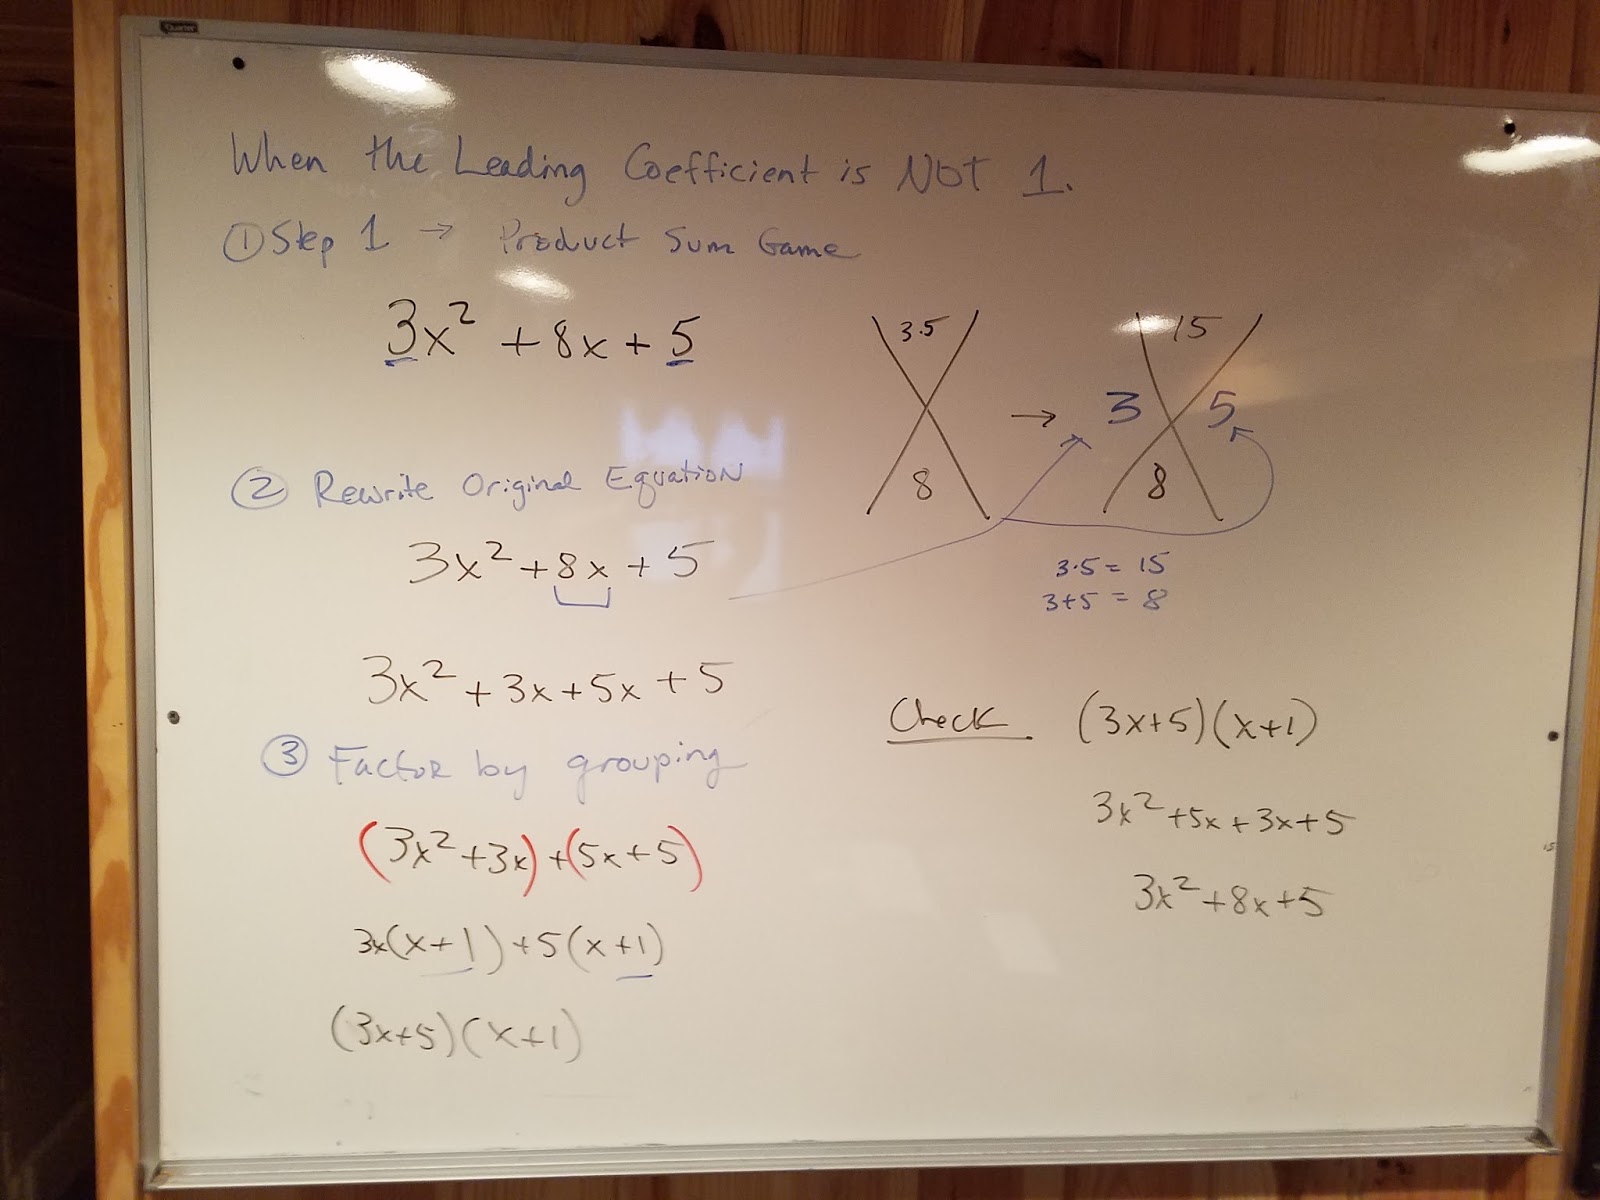 When the Leading Coefficient is NOT 1.
① Step 1 → Product Sum Game
3x² + 8x + 5
3·5
8
→
15
3 5
8
3·5 = 15
3+5 = 8
② Rewrite Original Equation
3x² + 8x + 5
3x² + 3x + 5x + 5
③ Factor by grouping
(3x² + 3x) + (5x + 5)
3x(x+1) + 5(x+1)
(3x+5)(x+1)
Check (3x+5)(x+1)
3x² + 5x + 3x + 5
3x² + 8x + 5